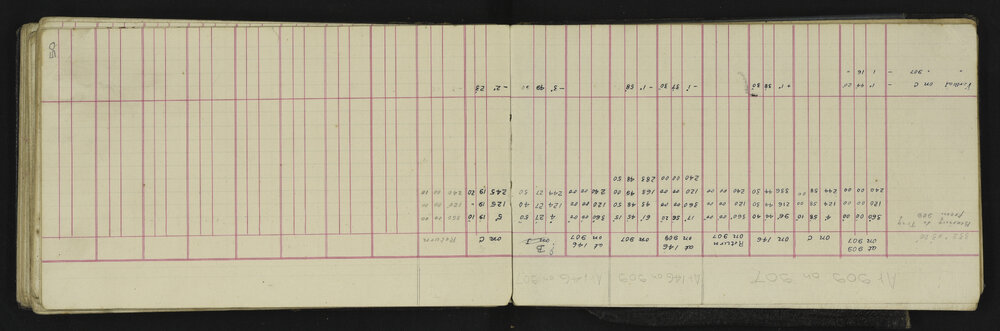 At 909 on 907 At 146 on 909 At 146 on 907
at 909 on 907 on C on 146 Return on 907 at 146 on 909 on 907 at 146 on 907 on B on C Return
Bearing to Trig from 909
360 00 00 4 58 10 96 44 40 360 00 00 17 56 61 45 15 360 00 00 4 27 50 5 19 10 360 00 10
120 00 00 124 58 216 44 50 120 00 00 360 00 00 45 48 50 120 00 00 124 27 40 125 19 - 120 00
240 00 00 244 58 00 336 44 50 240 00 00 120 00 00 165 49 00 240 00 00 244 27 50 245 19 20 240 00 10
240 00 00 285 48 50
Vertical on C - 1° 44 20 + 1° 38 30 - 1° 37 30 - 1° 58 - 3° 49 20 - 2° 23
" " 907 - 1 16 -
50